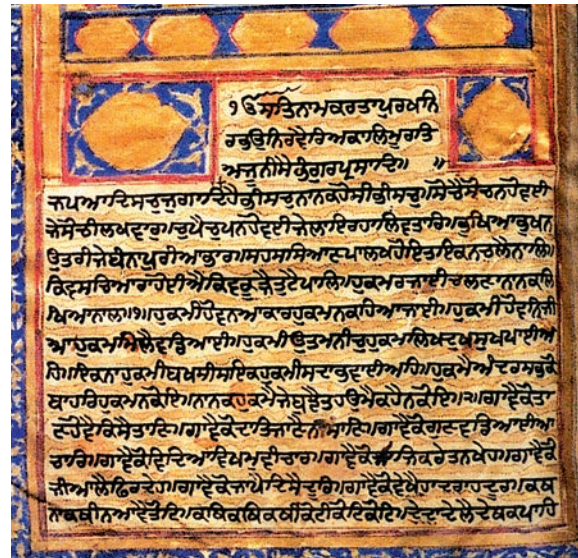 ੧ੳਸਤਿਨਾਮਕਰਤਾਪੁਰਖਨਿ
ਰਭਉਨਿਰਵੈਰਿਅਕਾਲਿਮੂਰਤਿ
ਅਜੂਨੀਸੈਭੰਗੁਰਪ੍ਰਸਾਦਿ॥ ॥
ਜਪਆਦਿਸਚੁਜੁਗਾਦਿਹੈਭੀਸਚਨਾਨਕਹੋਸੀਭੀਸਚੁ॥ਸੋਚੈਸੋਚਨਹੋਵਈ
ਜੇਸੋਚੀਲਖਵਾਰ॥ਚੁਪੈਚੁਪਨਹੋਵਈਜੇਲਾਇਰਹਾਲਿਵਤਾਰ॥ਭੁਖਿਆਭੁਖਨ
ਉਤਰੀਜੇਬੰਨਾਪੁਰੀਆਭਾਰ॥ਸਹਸਸਿਆਣਪਾਲਖਹੋਇਤਾਇਕਨਚਲੈਨਾਲਿ॥
ਕਿਵਸਚਿਆਰਾਹੋਈਐਕਿਵਕੂੜੈਤੁਟੈਪਾਲਿ॥ਹੁਕਮਰਜਾਈਚਲਣਾਨਾਨਕਲਿ
ਖਿਆਨਾਲ॥੧॥ਹੁਕਮੀਹੋਵਨਆਕਾਰਹੁਕਮਨਕਹਿਆਜਾਈ॥ਹੁਕਮੀਹੋਵਨਿਜੀ
ਆਹੁਕਮਮਿਲੈਵਡਿਆਈ॥ਹੁਕਮੀਉਤਮਨੀਚੁਹੁਕਮਲਿਖਦੁਖਸੁਖਪਾਈਅ
ਹਿ॥ਇਕਨਾਹੁਕਮੀਬਖਸੀਸਇਕਹੁਕਮੀਸਦਾਭਵਾਈਅਹਿ॥ਹੁਕਮੈਅੰਦਰਸਭੁਕੋ
ਬਾਹਰਿਹੁਕਮਨਕੋਇ॥ਨਾਨਕਹੁਕਮੈਜੇਬੁਝੈਤਹਉਮੈਕਹੈਨਕੋਇ॥੨॥ਗਾਵੈਕੋਤਾ
ਣਹੋਵੈਕਿਸੈਤਾਣਿ॥ਗਾਵੈਕੋਦਾਤਿਜਾਣੈਨੀਸਾਣਿ॥ਗਾਵੈਕੋਗੁਣਵਡਿਆਈਆ
ਚਾਰ॥ਗਾਵੈਕੋਵਿਦਿਆਵਿਖਮੁਵੀਚਾਰ॥ਗਾਵੈਕੋਸਾਜਿਕਰੇਤਨਖੇਹ॥ਗਾਵੈਕੋ
ਜੀਆਲੈਫਿਰਦੇਹ॥ਗਾਵੈਕੋਜਾਪੈਦਿਸੈਦੂਰਿ॥ਗਾਵੈਕੋਵੇਖੈਹਾਦਰਾਹਦੂਰ॥ਕਥ
ਨਾਕਥੀਨਆਵੈਤੋਟਿ॥ਕਥਿਕਥਿਕਥੀਕੋਟੀਕੋਟਿਕੋਟਿ॥ਦੇਦਾਦੇਲੈਦੇਥਕਪਾਹਿ